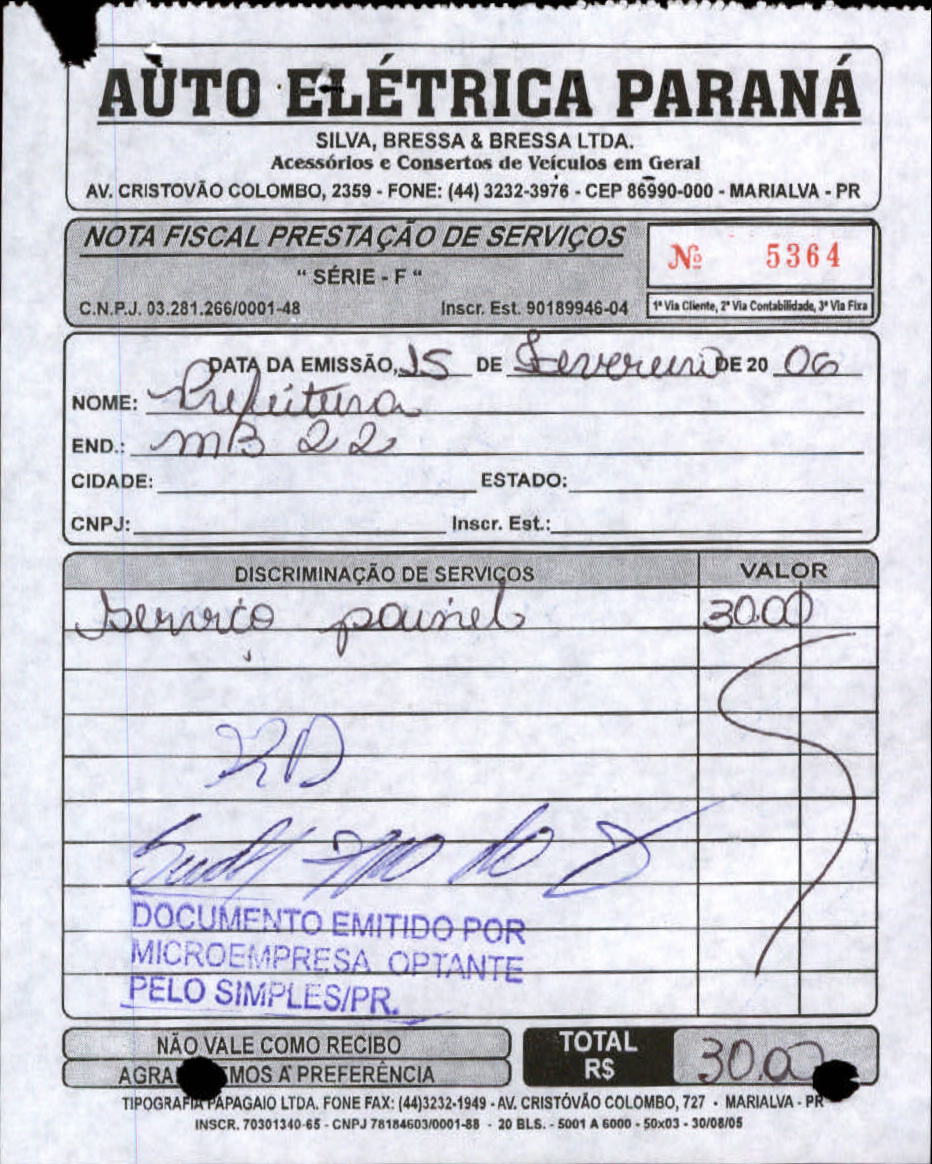 AUTO ELÉTRICA PARANÁ
SILVA, BRESSA & BRESSA LTDA.
Acessórios e Consertos de Veículos em Geral
AV. CRISTOVÃO COLOMBO, 2359 - FONE: (44) 3232-3976 - CEP 86990-000 - MARIALVA - PR
NOTA FISCAL PRESTAÇÃO DE SERVIÇOS
Nº 5364
" SÉRIE - F "
C.N.P.J. 03.281.266/0001-48 Inscr. Est. 90189946-04
1ª Via Cliente, 2ª Via Contabilidade, 3ª Via Fixa
DATA DA EMISSÃO, 15 DE Fevereiro DE 20 06
NOME: Prefeitura
END.: MB 22
CIDADE: ESTADO:
CNPJ: Inscr. Est.:
DISCRIMINAÇÃO DE SERVIÇOS VALOR
Serviço painel 30.00
DOCUMENTO EMITIDO POR
MICROEMPRESA OPTANTE
PELO SIMPLES/PR.
NÃO VALE COMO RECIBO
MOS A PREFERÊNCIA
TOTAL
R$ 30.00
TIPOGRAFIA PAPAGAIO LTDA. FONE FAX: (44)3232-1949 - AV. CRISTÓVÃO COLOMBO, 727 - MARIALVA - PR
INSCR. 70301340-65 - CNPJ 78184603/0001-88 - 20 BLS. - 5001 A 6000 - 50x03 - 30/08/05